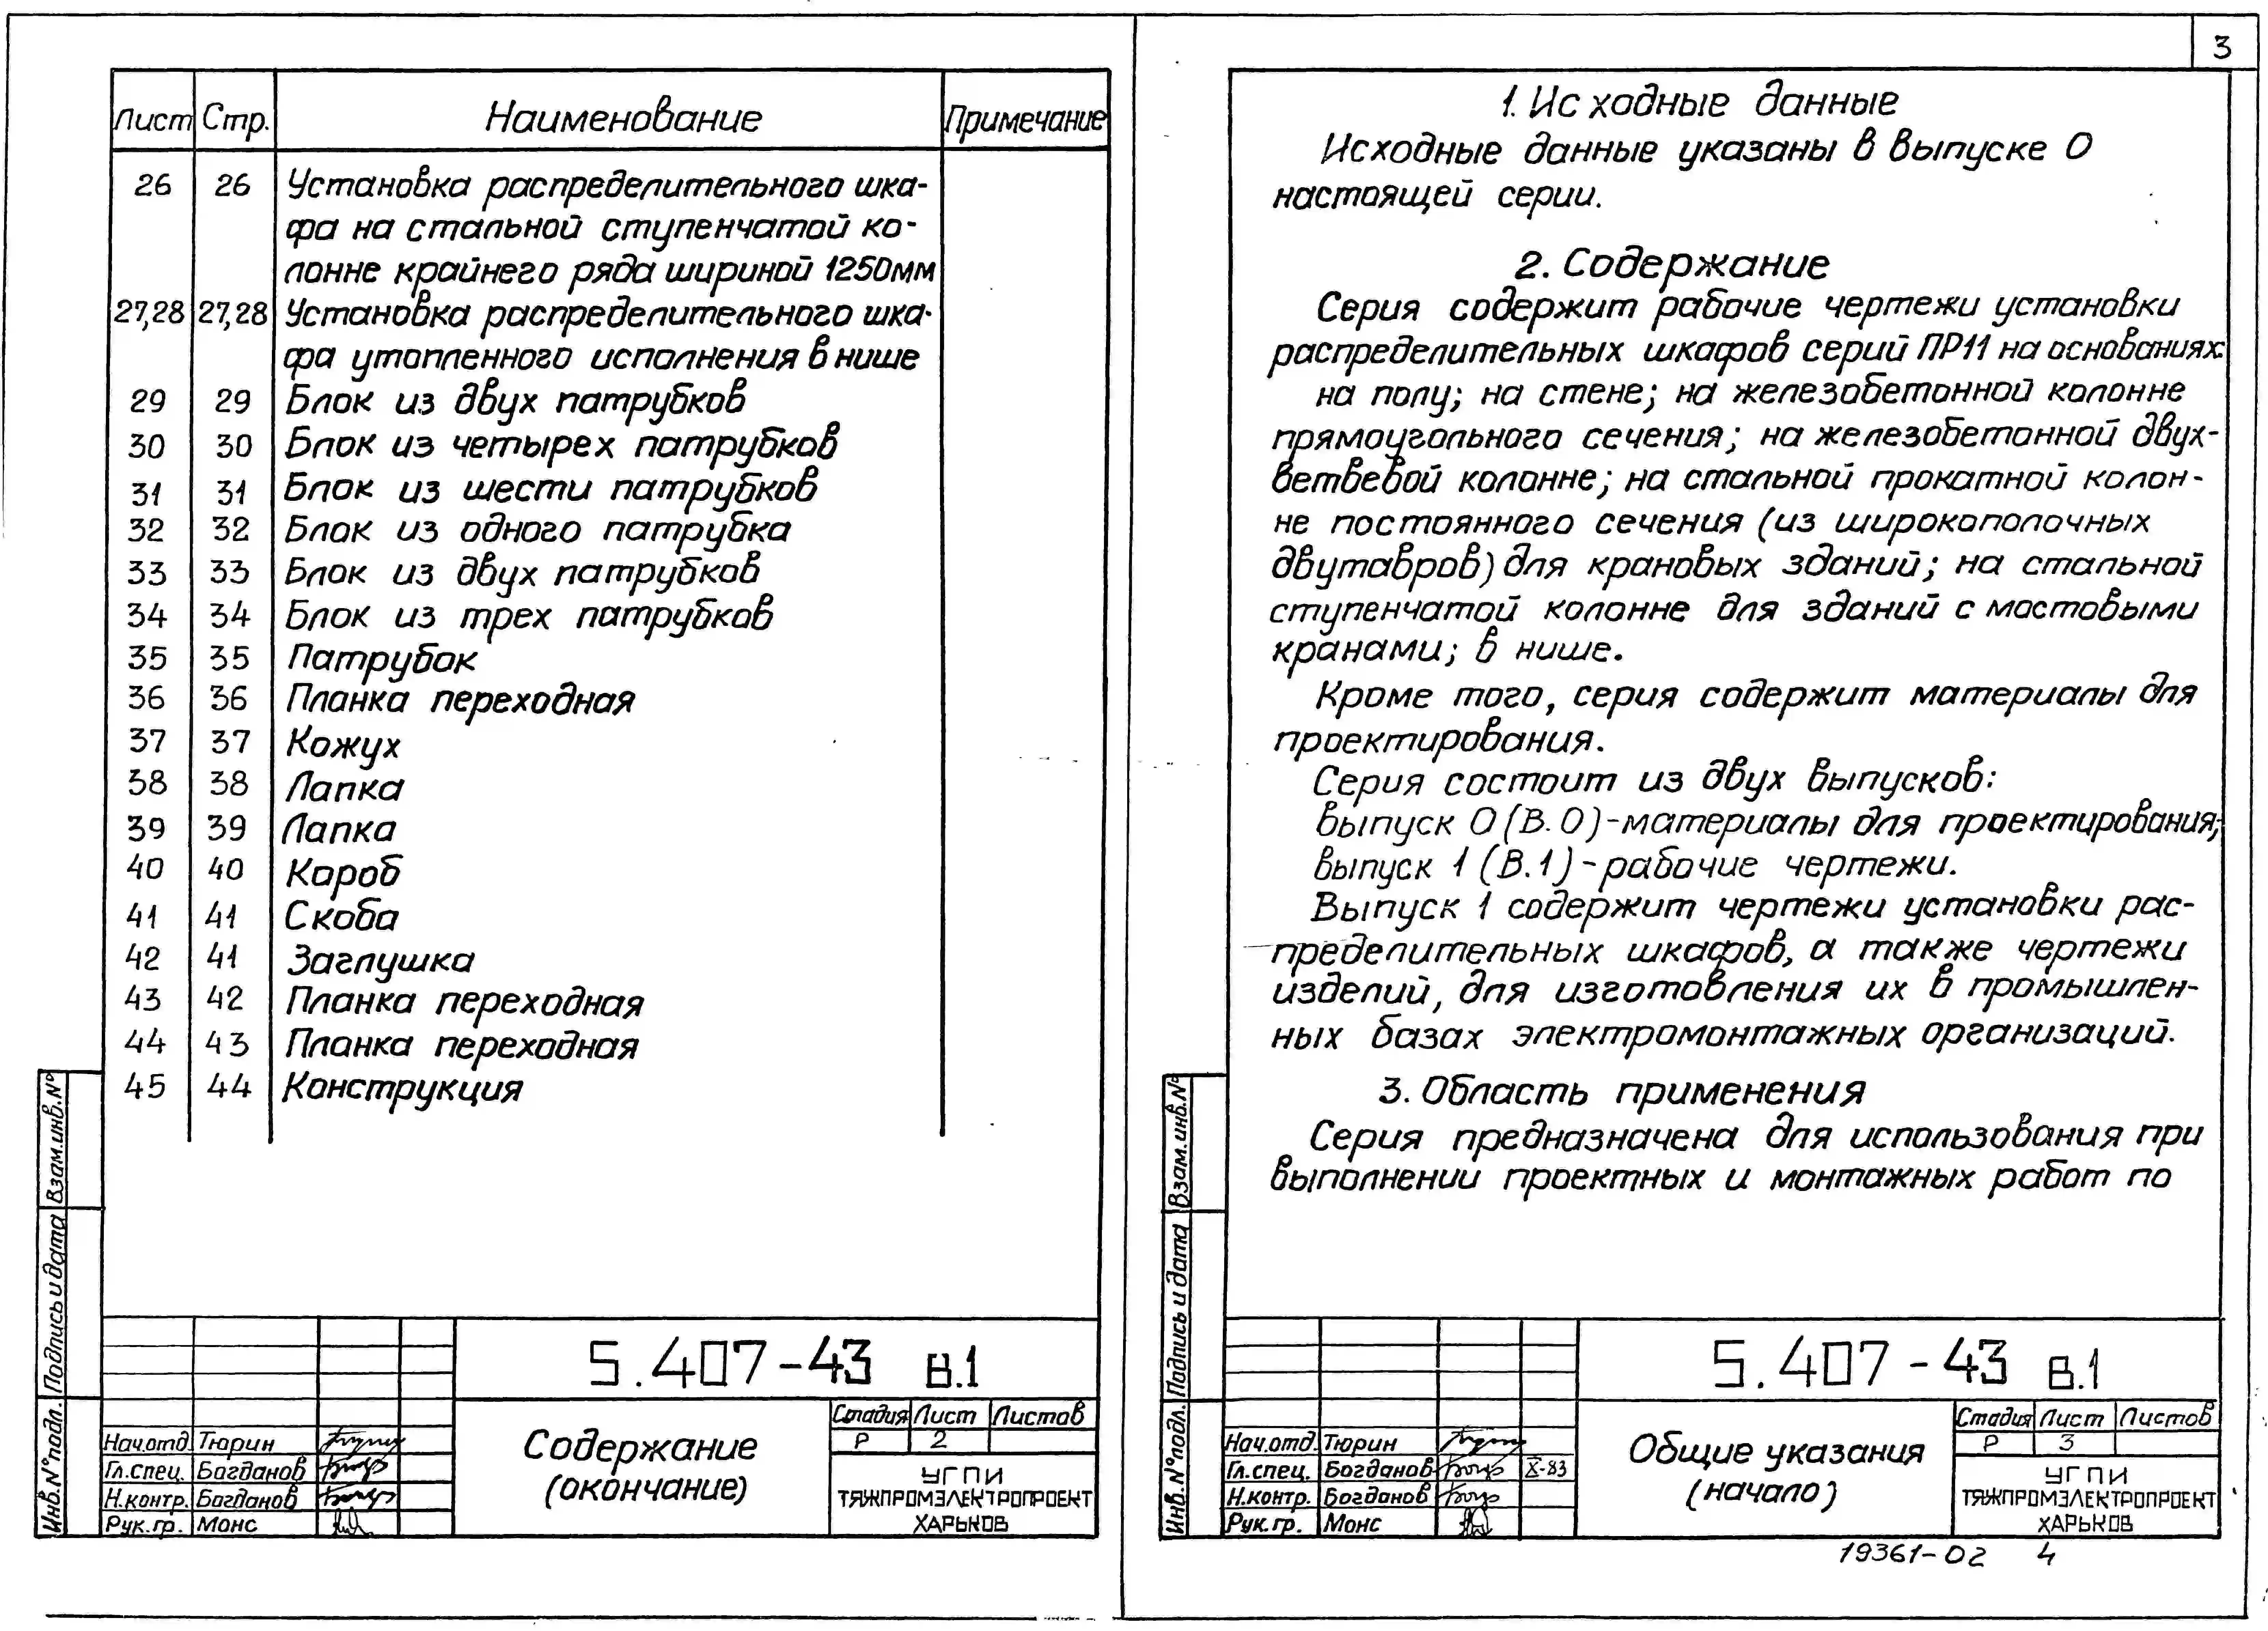 Лист Стр. Наименование Примечание
26 26 Установка распределительного шка-
фа на стальной ступенчатой ко-
лонне крайнего ряда шириной 1250мм
27,28 27,28 Установка распределительного шка-
фа утопленного исполнения в нише
29 29 Блок из двух патрубков
30 30 Блок из четырех патрубков
31 31 Блок из шести патрубков
32 32 Блок из одного патрубка
33 33 Блок из двух патрубков
34 34 Блок из трех патрубков
35 35 Патрубок
36 36 Планка переходная
37 37 Кожух
38 38 Лапка
39 39 Лапка
40 40 Короб
41 41 Скоба
42 41 Заглушка
43 42 Планка переходная
44 43 Планка переходная
45 44 Конструкция
Взам.инв.№
Подпись и дата
Инв.№подл.
5.407-43 В.1
Нач.отд. Тюрин
Гл.спец. Богданов
Н.контр. Богданов
Рук.гр. Монс
Содержание
(окончание)
Стадия Лист Листов
Р 2
УГПИ
ТЯЖПРОМЭЛЕКТРОПРОЕКТ
ХАРЬКОВ
3
1. Исходные данные
Исходные данные указаны в выпуске 0
настоящей серии.
2. Содержание
Серия содержит рабочие чертежи установки
распределительных шкафов серий ПР11 на основаниях:
на полу; на стене; на железобетонной колонне
прямоугольного сечения; на железобетонной двух-
ветвевой колонне; на стальной прокатной колон-
не постоянного сечения (из широкополочных
двутавров) для крановых зданий; на стальной
ступенчатой колонне для зданий с мостовыми
кранами; в нише.
Кроме того, серия содержит материалы для
проектирования.
Серия состоит из двух выпусков:
выпуск 0 (В.0)-материалы для проектирования;
выпуск 1 (В.1)-рабочие чертежи.
Выпуск 1 содержит чертежи установки рас-
пределительных шкафов, а также чертежи
изделий, для изготовления их в промышлен-
ных базах электромонтажных организаций.
3. Область применения
Серия предназначена для использования при
выполнении проектных и монтажных работ по
Взам.инв.№
Подпись и дата
Инв.№подл.
5.407-43 В.1
Нач.отд. Тюрин
Гл.спец. Богданов X-83
Н.контр. Богданов
Рук.гр. Монс
Общие указания
(начало)
Стадия Лист Листов
Р 3
УГПИ
ТЯЖПРОМЭЛЕКТРОПРОЕКТ
ХАРЬКОВ
19361-02 4